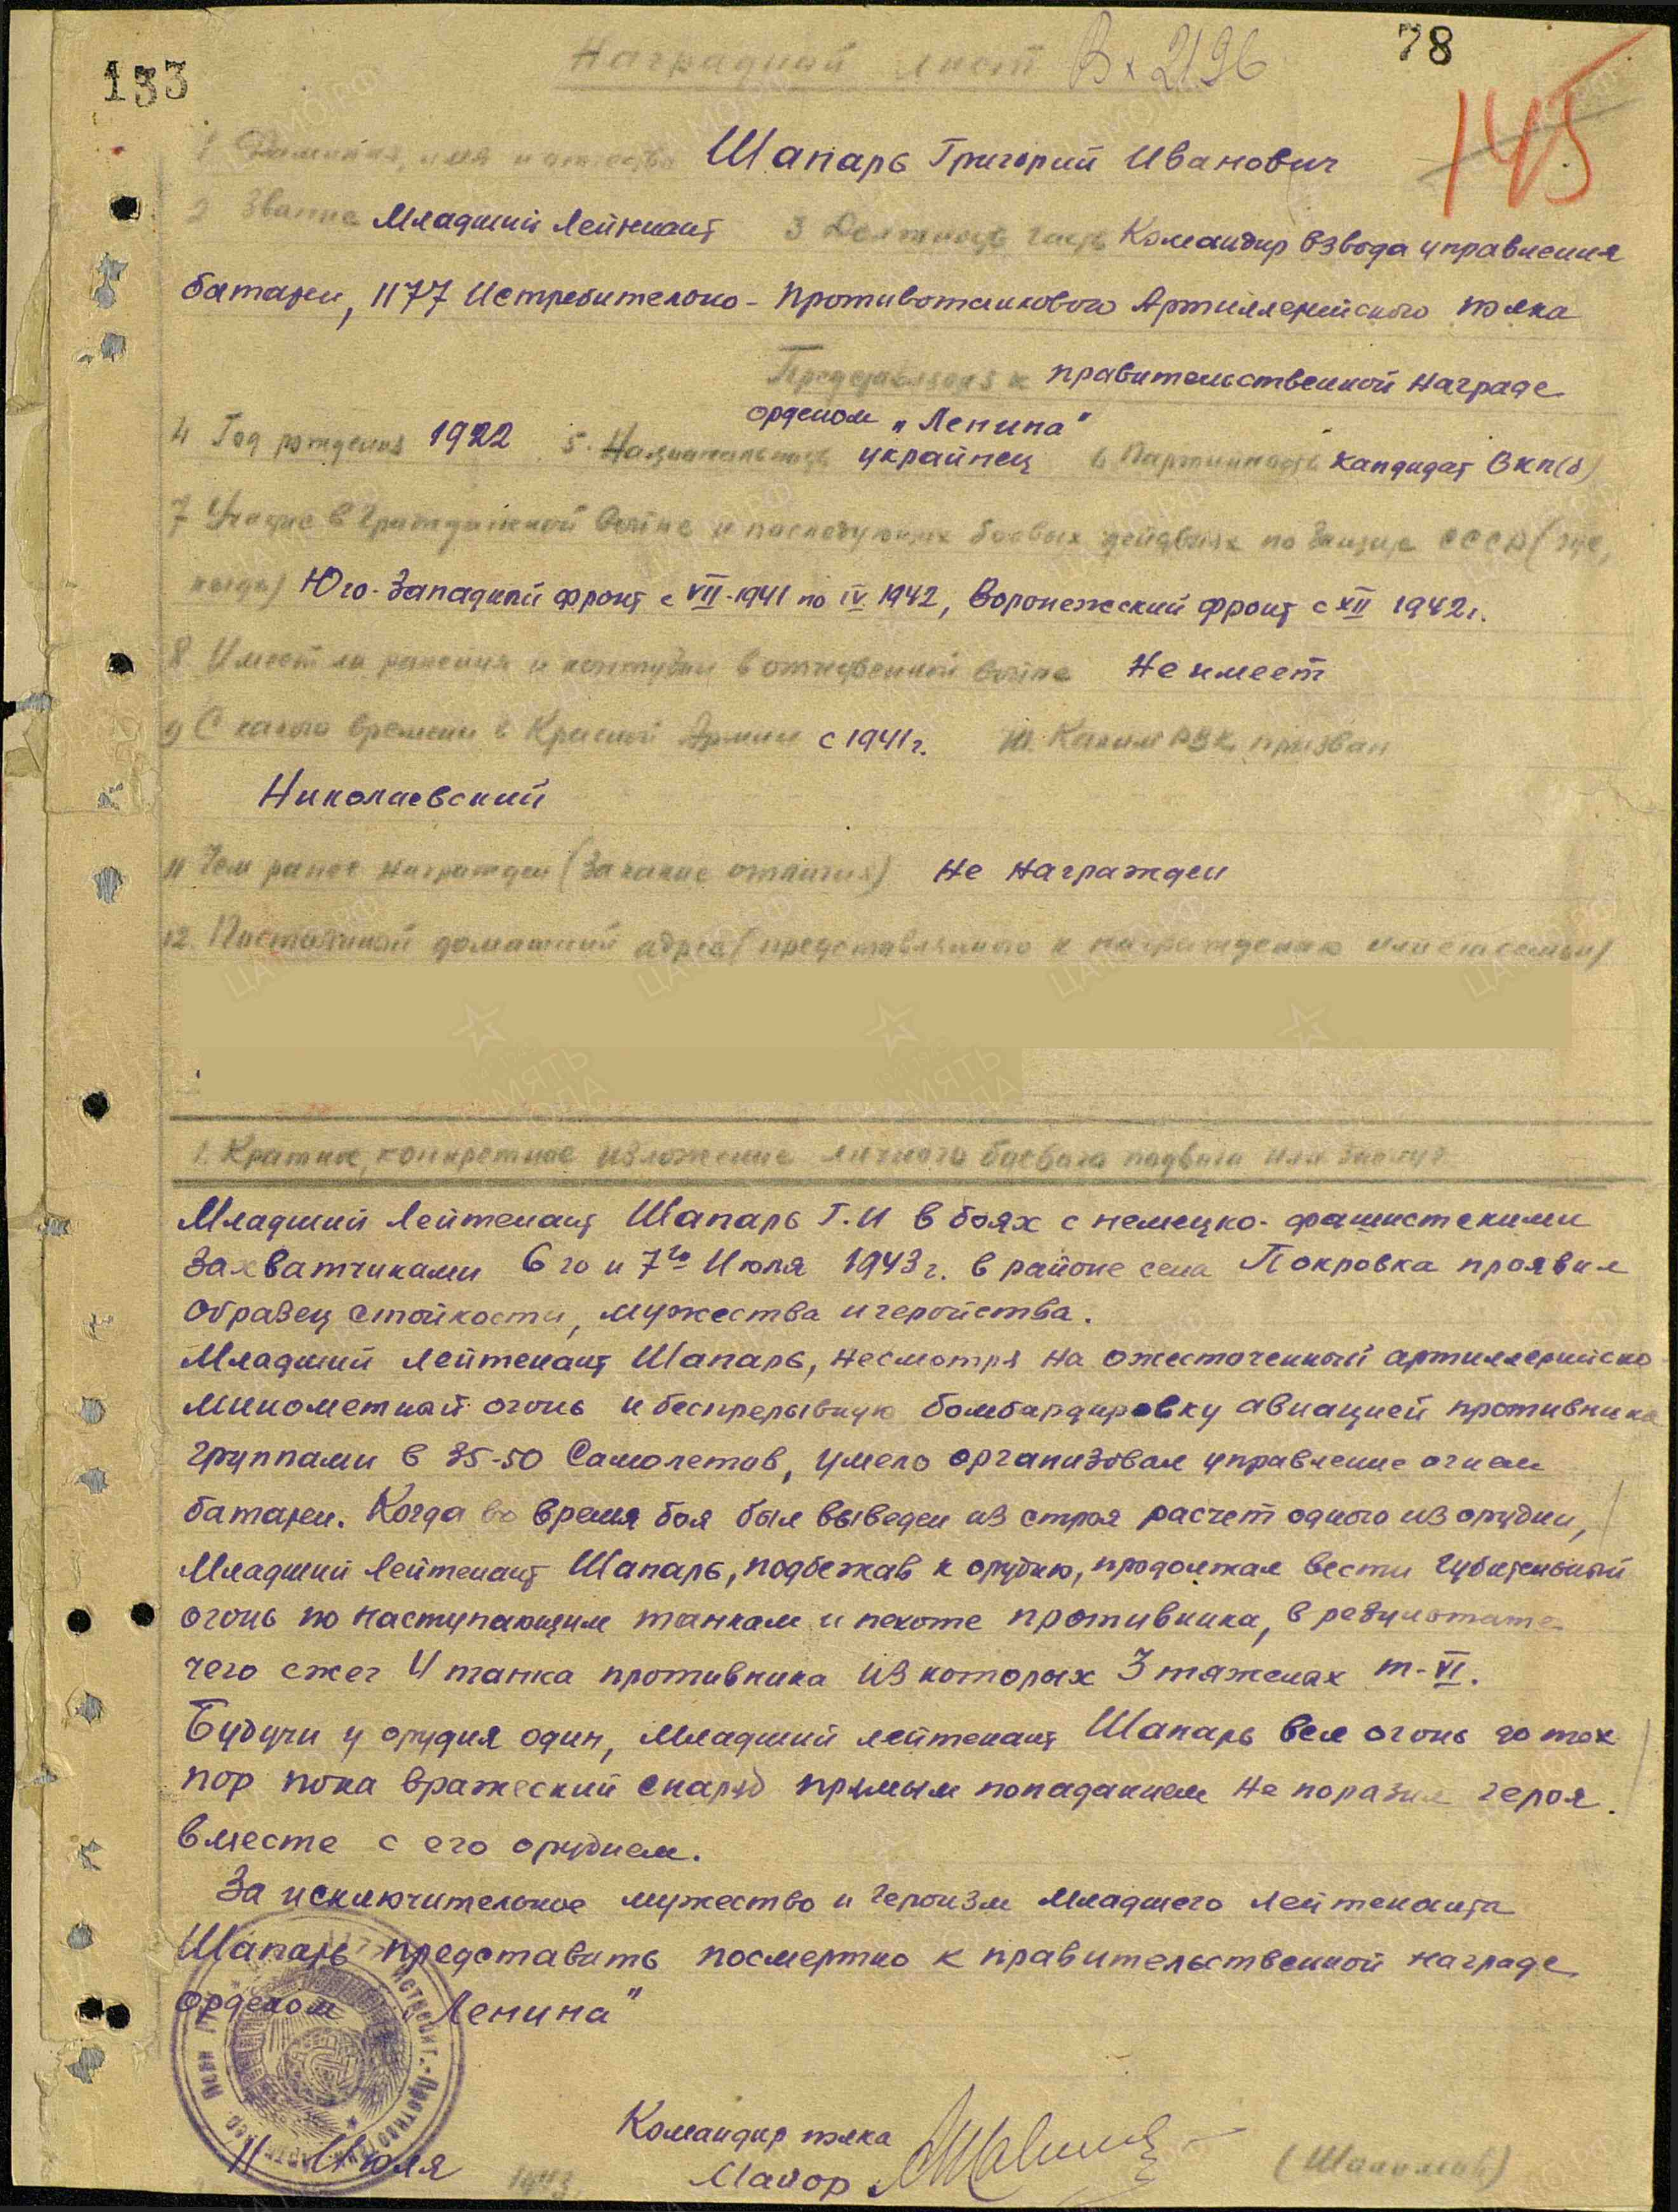 133
78
Наградной лист Вх 2196
145
1 Фамилия, имя и отчество Шапарь Григорий Иванович
2 Звание Младший Лейтенант 3 Должность часть Командир взвода управления
батареи, 1177 Истребительно-Противотанкового Артиллерийского полка
Представляется к правительственной награде
орденом „Ленина"
4 Год рождения 1922 5. Национальность украинец 6 Партийность кандидат ВКП(б)
7 Участие в гражданской войне и последующих боевых действиях по защите СССР (где,
когда) Юго-Западный фронт с VII-1941 по IV 1942, Воронежский фронт с XII 1942г.
8 Имеет ли ранения и контузии в отечественной войне Не имеет
9 С какого времени в Красной Армии с 1941г. 10. Каким РВК призван
Николаевский
11 Чем ранее награжден (за какие отличия) Не награжден
12. Постоянный домашний адрес (представляемого к награждению или его семьи)
1. Краткое, конкретное изложение личного боевого подвига или заслуг
Младший Лейтенант Шапарь Г.И в боях с немецко-фашистскими
захватчиками 6го и 7го Июля 1943г. в районе села Покровка проявил
образец стойкости, мужества и геройства.
Младший лейтенант Шапарь, несмотря на ожесточенный артиллерийско
минометный огонь и беспрерывную бомбардировку авиацией противника
группами в 35-50 Самолетов, умело организовал управление огнем
батареи. Когда во время боя был выведен из строя расчет одного из орудии,
Младший Лейтенант Шапарь, подбежав к орудию, продолжал вести губительный
огонь по наступающим танкам и пехоте противника, в результате
чего сжег 4 танка противника из которых 3 тяжелых т-VI.
Будучи у орудия один, младший лейтенант Шапарь вел огонь до тех
пор пока вражеский снаряд прямым попаданием не поразил героя
вместе с его орудием.
За исключительное мужество и героизм младшего лейтенанта
Шапарь представить посмертно к правительственной награде
орденом „Ленина"
Командир полка
11 Июля 1943 Майор (Шалимов)